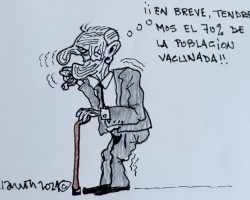 ¡¡EN BREVE, TENDRE
MOS EL 70% DE
LA POBLACIÓN
VACUNADA!!
2021©